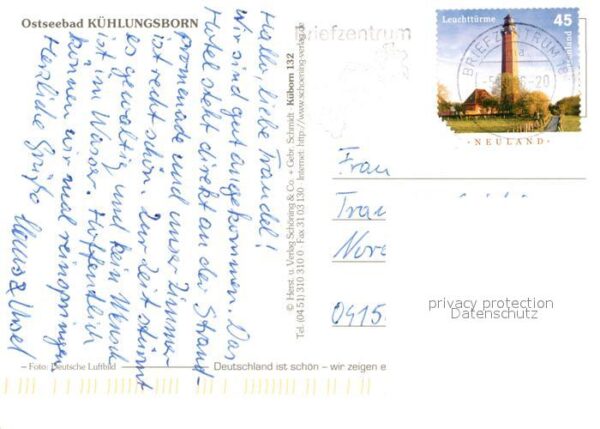 Ostseebad KÜHLUNGSBORN
Hallo, liebe Traudel!
Wir sind gut angekommen. Das
Hotel steht direkt an der Strand-
promenade und unser Zimmer
ist recht schön. Zur Zeit stürmt
es gewaltig und kein Mensch
ist im Wasser. Hoffentlich
können wir mal reinspringen
Herzliche Grüße
– Foto: Deutsche Luftbild
© Herst. u. Verlag Schöning & Co. + Gebr. Schmidt Küborn 132
Tel. (04 51) 310 310 0 · Fax 31 03 130 Internet: http://www.schoening-verlag.de
Deutschland ist schön – wir zeigen e
Briefzentrum
Leuchttürme 45
BRIEFZENTRUM 18
NEULAND
Frau
Trau
0415
privacy protection
Datenschutz